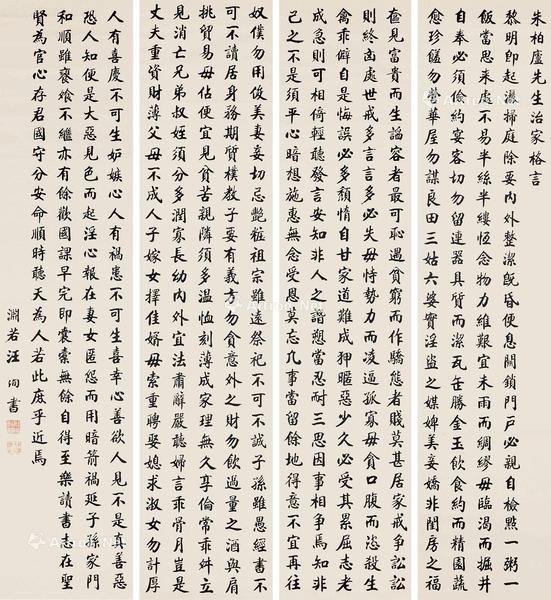 朱柏廬先生治家格言
黎明即起灑掃庭除要內外整潔既昏便息關鎖門戶必親自檢點一粥一
飯當思來處不易半絲半縷恆念物力維艱宜未雨而綢繆毋臨渴而掘井
自奉必須儉約宴客切勿留連器具質而潔瓦缶勝金玉飲食約而精園蔬
愈珍饈勿營華屋勿謀良田三姑六婆實淫盜之媒婢美妾嬌非閨房之福
奴僕勿用俊美妻妾切忌艷粧祖宗雖遠祭祀不可不誠子孫雖愚經書不
可不讀居身務期質樸教子要有義方勿貪意外之財勿飲過量之酒與肩
挑貿易毋佔便宜見貧苦親隣須多溫恤刻薄成家理無久享倫常乖舛立
見消亡兄弟叔姪須分多潤寡長幼內外宜法肅辭嚴聽婦言乖骨月豈是
丈夫重資財薄父母不成人子嫁女擇佳婿毋索重聘娶媳求淑女勿計厚
奩見富貴而生諂容者最可恥遇貧窮而作驕態者賤莫甚居家戒爭訟訟
則終凶處世戒多言言多必失毋恃勢力而凌逼孤寡毋貪口腹而恣殺生
禽乖僻自是悔誤必多頹惰自甘家道難成狎暱惡少久必受其累屈志老
成急則可相倚輕聽發言安知非人之譖愬當忍耐三思因事相爭焉知非
己之不是須平心暗想施惠無念受恩莫忘凡事當留餘地得意不宜再往
人有喜慶不可生妒嫉心人有禍患不可生喜幸心善欲人見不是真善惡
恐人知便是大惡見色而起淫心報在妻女匿怨而用暗箭禍延子孫家門
和順雖饔飧不繼亦有餘歡國課早完即囊橐無餘自得至樂讀書志在聖
賢為官心存君國守分安命順時聽天為人若此庶乎近焉
淵若汪洵書